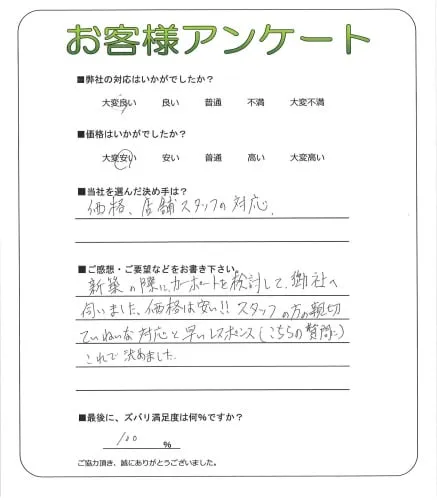 お客様アンケート
■弊社の対応はいかがでしたか?
大変良い 良い 普通 不満 大変不満
■価格はいかがでしたか?
大変安い 安い 普通 高い 大変高い
■当社を選んだ決め手は?
価格、店舗スタッフの対応。
■ご感想・ご要望などをお書き下さい。
新築の際にカーポートを検討して、御社へ
伺いました。価格は安い!! スタッフの方の親切
ていねいな対応と早いレスポンス(こちらの質問に)
これで決めました。
■最後に、ズバリ満足度は何%ですか?
100 %
ご協力頂き、誠にありがとうございました。